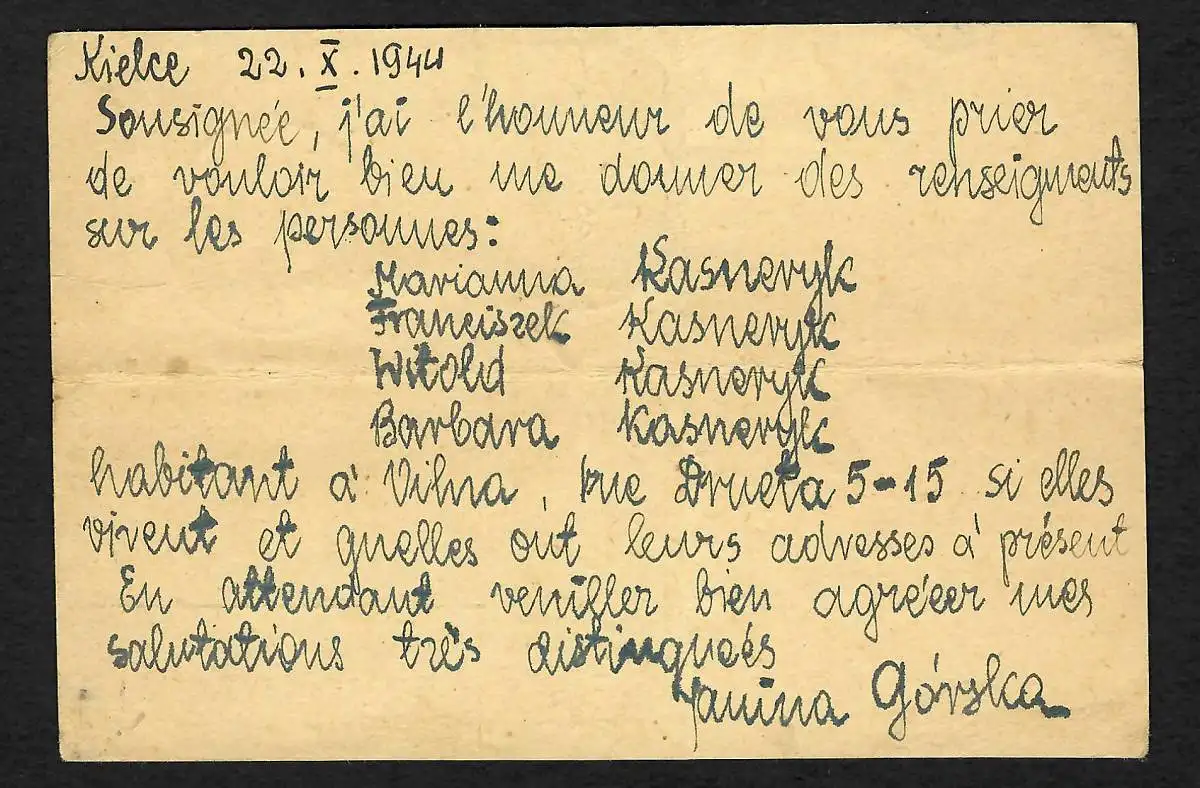 Kielce 22. X. 1944
Sousignée, j'ai l'honneur de vous prier
de vouloir bien me donner des renseigments
sur les personnes:
Marianna Kasneryk
Franciszek Kasneryk
Witold Kasneryk
Barbara Kasneryk
habitant à Vilna, rue Drueta 5-15 si elles
vivent et quelles ont leurs adresses à présent
En attendant veniller bien agréeer mes
salutations très distinguées
Janina Górska